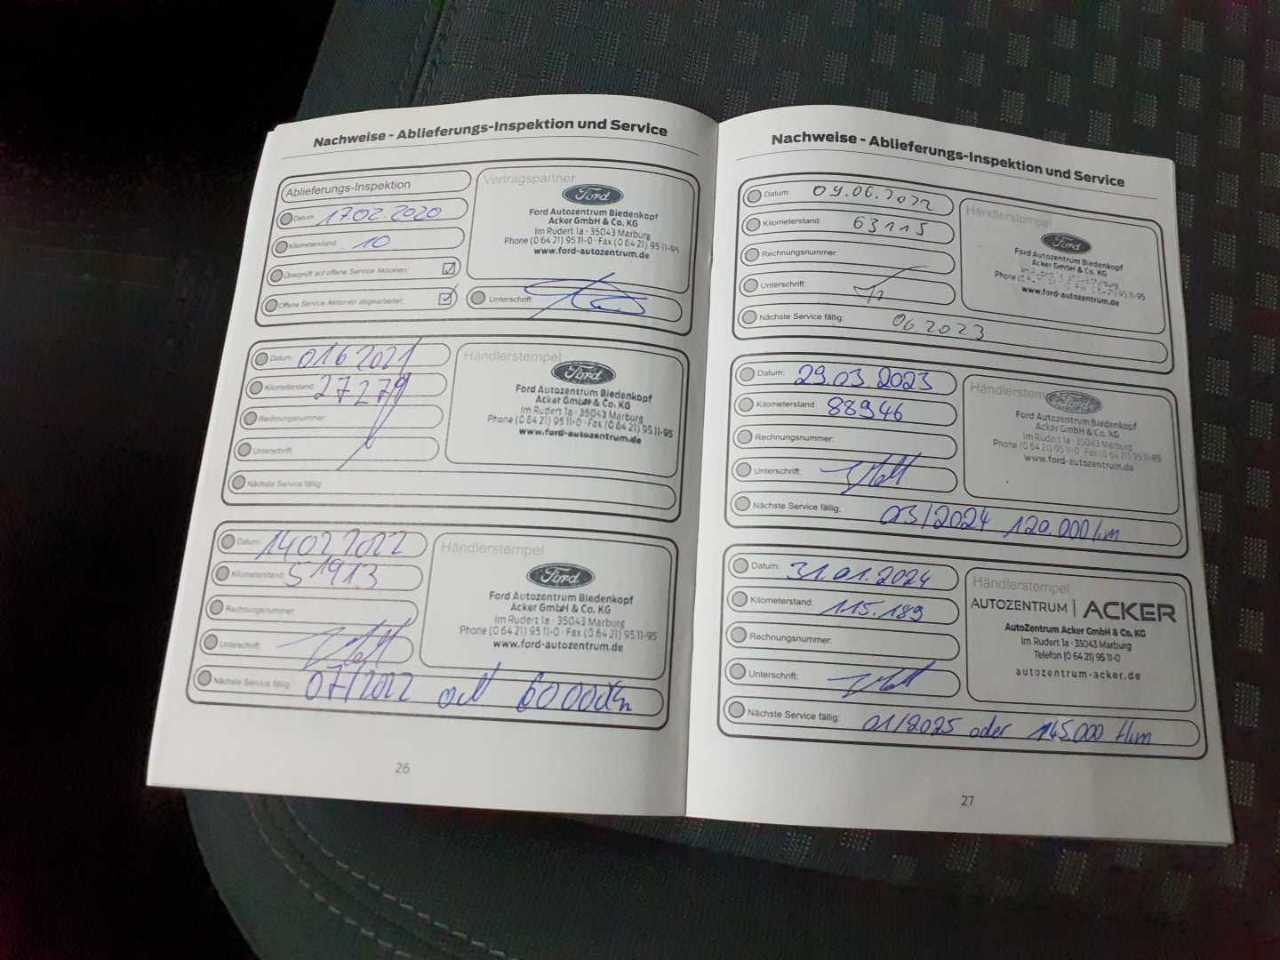 Nachweise - Ablieferungs-Inspektion und Service
Ablieferungs-Inspektion
Datum: 17.02.2020
Kilometerstand: 10
Überprüft auf offene Service Aktionen:
Offene Service Aktionen abgearbeitet:
Vertragspartner
Ford
Ford Autozentrum Biedenkopf
Acker GmbH & Co. KG
Im Rudert 1a · 35043 Marburg
Phone (0 64 21) 95 11-0 · Fax (0 64 21) 95 11-95
www.ford-autozentrum.de
Unterschrift:
Datum: 01 6 2021
Kilometerstand: 27279
Rechnungsnummer:
Unterschrift:
Nächste Service fällig:
Händlerstempel
Ford
Ford Autozentrum Biedenkopf
Acker GmbH & Co. KG
Im Rudert 1a · 35043 Marburg
Phone (0 64 21) 95 11-0 · Fax (0 64 21) 95 11-95
www.ford-autozentrum.de
Datum: 14.02.2022
Kilometerstand: 51913
Rechnungsnummer:
Unterschrift:
Nächste Service fällig: 07/2022 od 60000km
Händlerstempel
Ford
Ford Autozentrum Biedenkopf
Acker GmbH & Co. KG
Im Rudert 1a · 35043 Marburg
Phone (0 64 21) 95 11-0 · Fax (0 64 21) 95 11-95
www.ford-autozentrum.de
26
Nachweise - Ablieferungs-Inspektion und Service
Datum: 09.06.2022
Kilometerstand: 63115
Rechnungsnummer:
Unterschrift:
Nächste Service fällig: 06 2023
Händlerstempel
Ford
Ford Autozentrum Biedenkopf
Acker GmbH & Co. KG
Im Rudert 1a · 35043 Marburg
Phone (0 64 21) 95 11-0 · Fax (0 64 21) 95 11-95
www.ford-autozentrum.de
Datum: 29.03.2023
Kilometerstand: 88946
Rechnungsnummer:
Unterschrift:
Nächste Service fällig: 03/2024 120.000 km
Händlerstempel
Ford
Ford Autozentrum Biedenkopf
Acker GmbH & Co. KG
Im Rudert 1a · 35043 Marburg
Phone (0 64 21) 95 11-0 · Fax (0 64 21) 95 11-95
www.ford-autozentrum.de
Datum: 31.01.2024
Kilometerstand: 115.189
Rechnungsnummer:
Unterschrift:
Nächste Service fällig: 01/2025 oder 145.000 km
Händlerstempel
AUTOZENTRUM | ACKER
AutoZentrum Acker GmbH & Co. KG
Im Rudert 1a · 35043 Marburg
Telefon (0 64 21) 95 11-0
autozentrum-acker.de
27